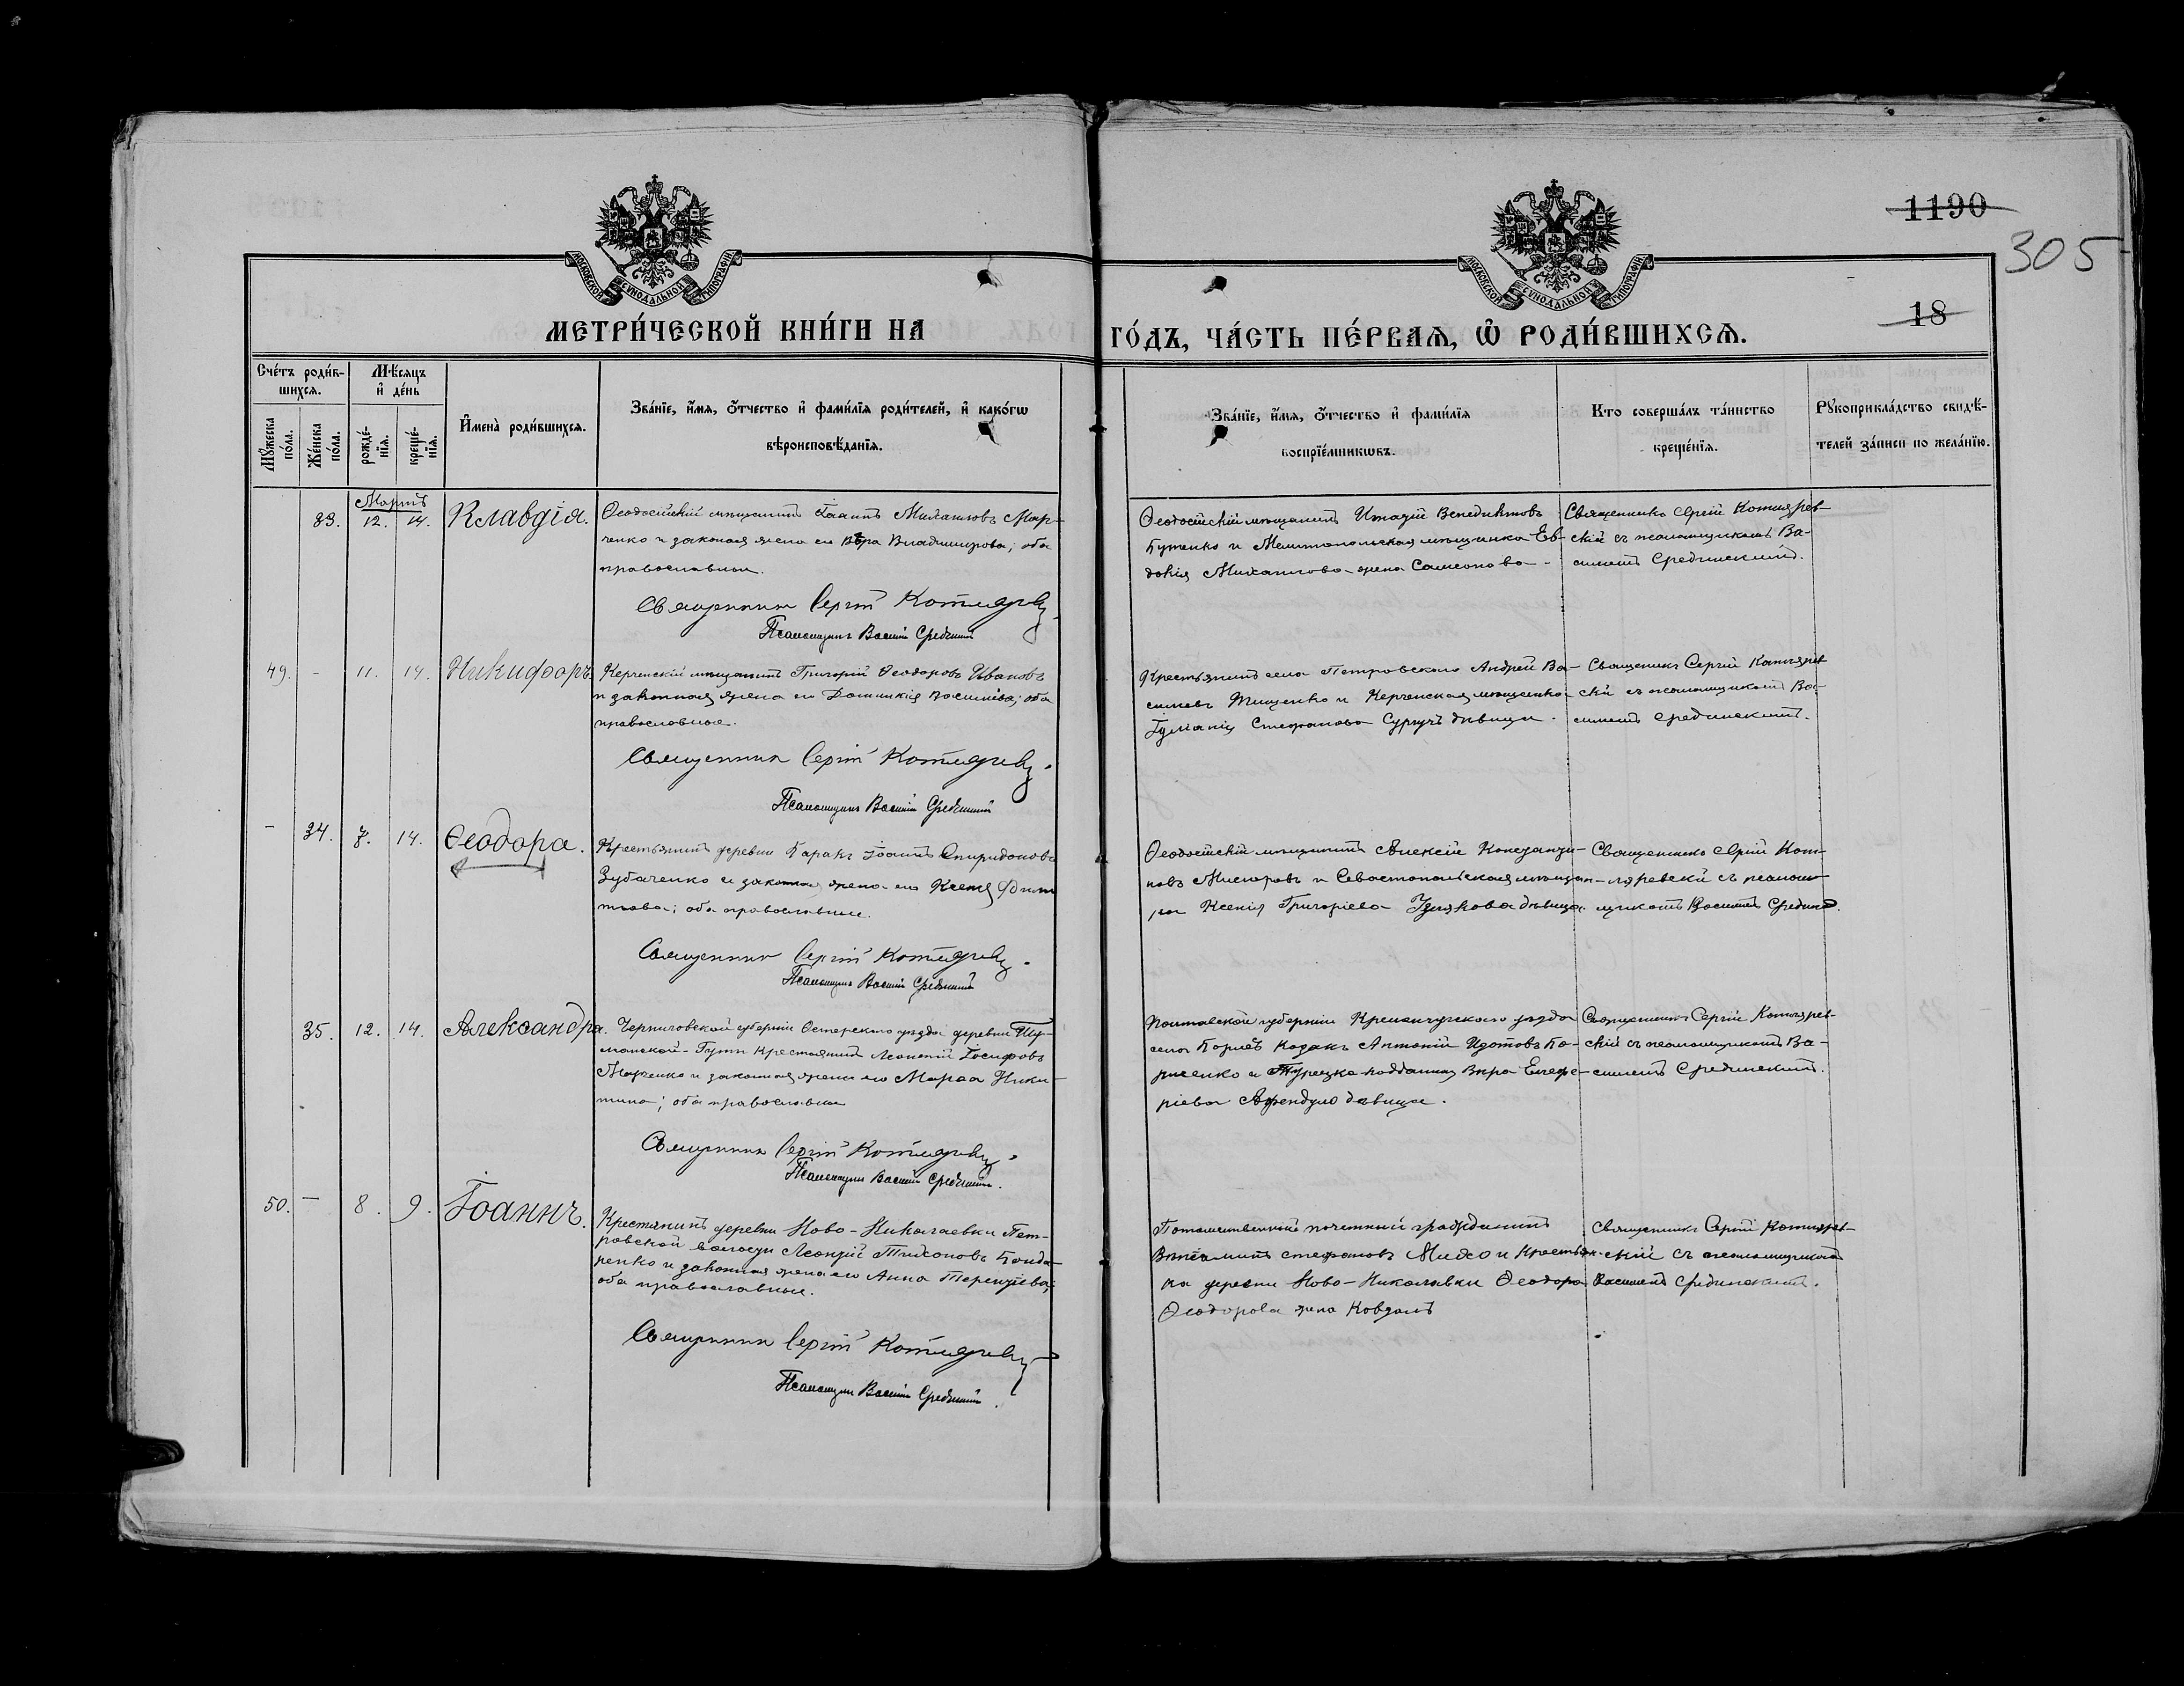 1190
305
18
МОСКОВСКОЙ СУНОДАЛЬНОЙ ТИПОГРАФІИ
МОСКОВСКОЙ СУНОДАЛЬНОЙ ТИПОГРАФІИ
МЕТРИ́ЧЕСКОЙ КНИ́ГИ НА ГО́ДЪ, ЧА́СТЬ ПЕ́РВАѦ, Ѡ҆ РОДИ́ВШИХСѦ.
Сче́тъ роди́в-
шихсѧ.
Мꙋ́жеска по́ла.
Же́нска по́ла.
Мѣ́сяцъ
и҆ де́нь
рожде́-
нїѧ.
креще́-
нїѧ.
И҆мена̀ роди́вшихсѧ.
Зва́нїе, и҆́мѧ, ѻ҆́тчество и҆ фами́лїѧ роди́телей, и҆ како́гѡ
вѣроисповѣ́данїѧ.
Зва́нїе, и҆́мѧ, ѻ҆́тчество и҆ фами́лїѧ
воспрїе́мникѡвъ.
Кто соверша́лъ та́инство
креще́нїѧ.
Рꙋкоприкла́дство свидѣ́-
телей за́писи по жела́нїю.
Мартъ
83. 12. 14. Клавдія.
Ѳеодосійскій мѣщанинъ Іоаннъ Михаиловъ Мар-
ченко и законная жена его Вѣра Владимирова; оба
православные.
Священникъ Сергій Котляревс
Псаломщикъ Василій Срединскій
Ѳеодосійскій мѣщанинъ Игнатій Венедиктовъ
Бутенко и Мелитопольская мѣщанка Ев-
докія Михаилова жена Самсонова.
Священникъ Сергій Котлярев-
скій съ псаломщикомъ Ва-
силіемъ Срединскимъ.
49. – 11. 14. Никифоръ.
Керченскій мѣщанинъ Григорій Ѳеодоровъ Ивановъ
и законная жена его Домникія Васильева; оба
православные.
Священникъ Сергій Котляревс
Псаломщикъ Василій Срединскій
Крестьянинъ села Петровскаго Андрей Ва-
сильевъ Тищенко и Керченская мѣщанка
Іуліанія Стефанова Сургучъ дѣвица.
Священникъ Сергій Котлярев-
скій съ псаломщикомъ Ва-
силіемъ Срединскимъ.
– 34. 7. 14. Ѳеодора.
Крестьянинъ деревни Каракъ Іоаннъ Спиридоновъ
Зубаченко и законная жена его Ксенія
оба православные.
Священникъ Сергій Котляревс
Псаломщикъ Василій Срединскій
Ѳеодосійскій мѣщанинъ Алексій Констанди-
новъ и Севастопольская мѣщан-
ка Ксенія Григоріева дѣвица.
Священникъ Сергій Кот-
ляревскій съ псалом-
щикомъ Василіемъ Средин.
35. 12. 14. Александра.
Черниговской губерніи Остерскаго уѣзда деревни Шу-
манской-Гуты крестьянинъ Леонтій Іосифовъ
и законная жена его Марѳа Ники-
тина; оба православные
Священникъ Сергій Котляревс
Псаломщикъ Василій Срединскій.
Полтавской губерніи Кременчугскаго уѣзда
села козакъ Антоній Бо-
рисенко и Турецко-подданная Вѣра Елефе-
ріева Афендуло дѣвица.
Священникъ Сергій Котлярев-
скій съ псаломщикомъ Ва-
силіемъ Срединскимъ.
50. – 8. 9. Іоаннъ.
Крестьянинъ деревни Ново-Николаевки Пет-
ровской волости Тихоновъ Бонда-
ренко и законная жена его Анна Терентіева;
оба православные.
Священникъ Сергій Котляревс
Псаломщикъ Василій Срединскій.
Потомственный почетный гражданинъ
Стефановъ и крестьян-
ка деревни Ново-Николаевки Ѳеодора
Ѳеодорова жена
Священникъ Сергій Котлярев-
скій съ псаломщикомъ
Василіемъ Срединскимъ.